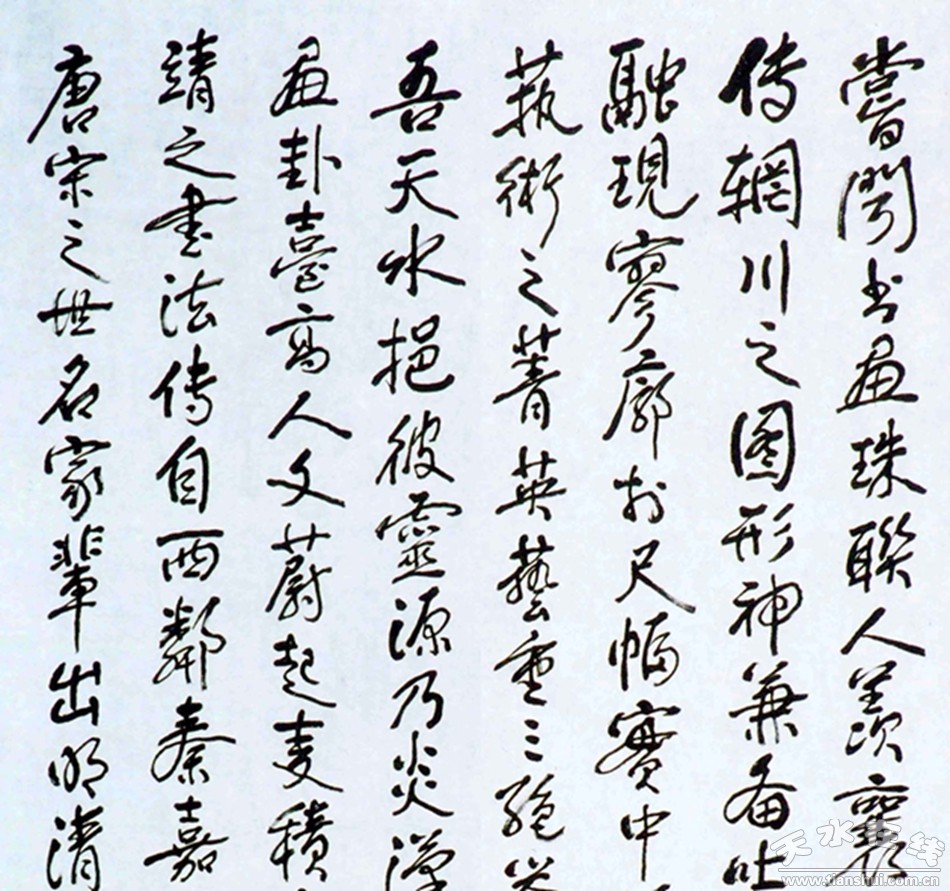 嘗聞書畫珠聯人羨襄陽
传輞川之图形神兼备吐
融現寥廓於尺幅實中
執術之菁英藝重三絕
吾天水挹彼靈源乃炎漢
畫卦臺高人文蔚起麦積
靖之書法传自西鄰秦嘉
唐宋之世名家輩出明清
天水在线
www.tianshui.com.cn